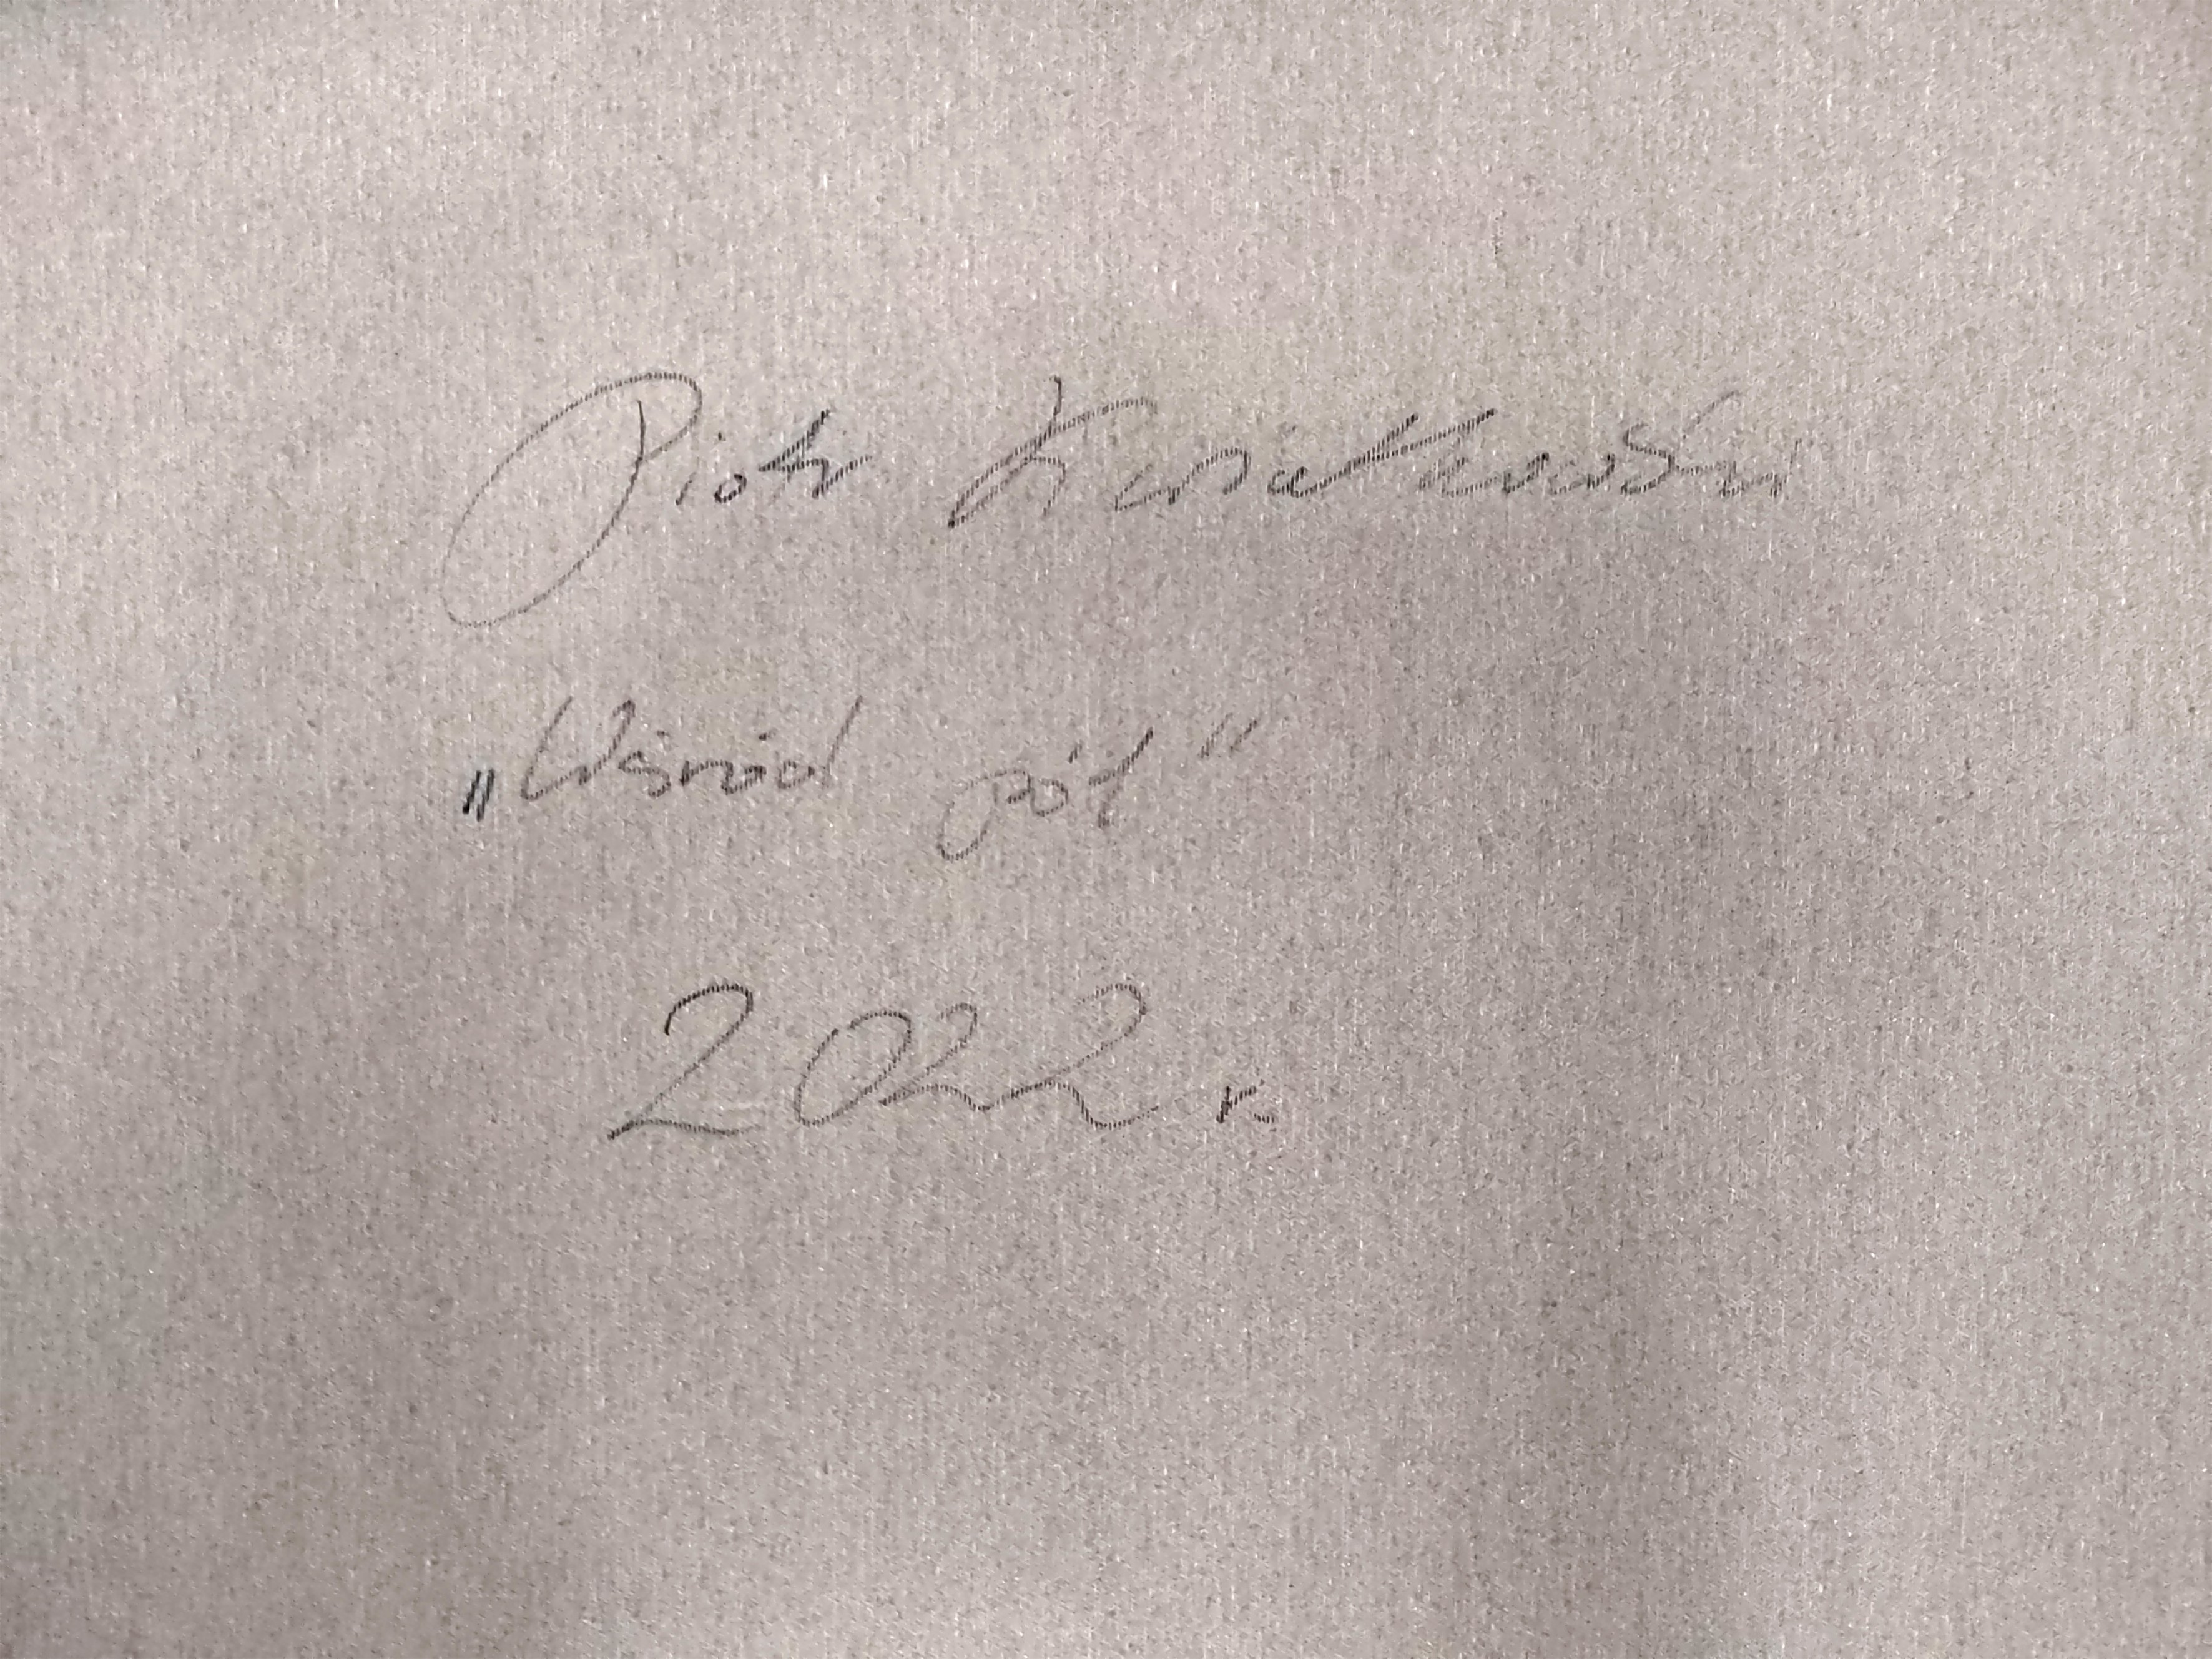 Piotr Kwiatkowski
„Wśród pól"
2022 r.